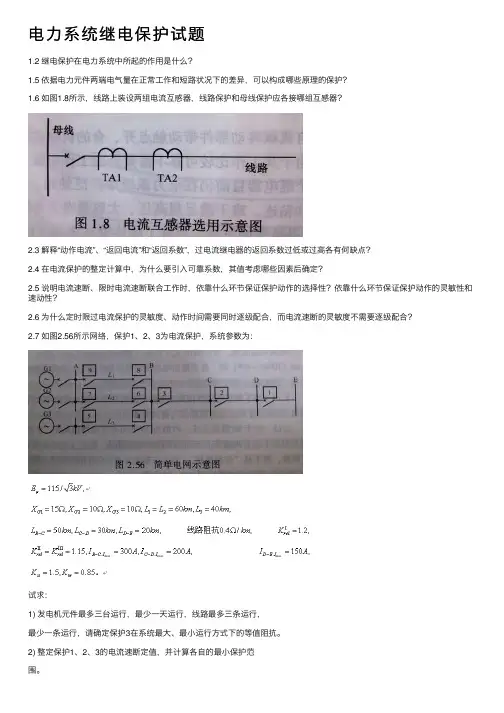 电力系统继电保护试题
1.2 继电保护在电力系统中所起的作用是什么?
1.5 依据电力元件两端电气量在正常工作和短路状况下的差异，可以构成哪些原理的保护?
1.6 如图1.8所示，线路上装设两组电流互感器，线路保护和母线保护应各接哪组互感器?
母线
TA1
TA2
线路
图 1.8 电流互感器选用示意图
2.3 解释“动作电流”、“返回电流”和“返回系数”，过电流继电器的返回系数过低或过高各有何缺点?
2.4 在电流保护的整定计算中，为什么要引入可靠系数，其值考虑哪些因素后确定?
2.5 说明电流速断、限时电流速断联合工作时，依靠什么环节保证保护动作的选择性? 依靠什么环节保证保护动作的灵敏性和
速动性?
2.6 为什么定时限过电流保护的灵敏度、动作时间需要同时逐级配合，而电流速断的灵敏度不需要逐级配合?
2.7 如图2.56所示网络，保护1、2、3为电流保护，系统参数为:
G1 A 9 L₁ 8 B
C D E
G2 7 L₂ 6 3 2 1
G3 5 L₃ 4
图 2.56 简单电网示意图
E_φ=115/√3kV,
X_G1=15Ω,X_G2=10Ω,X_G3=10Ω,L₁=L₂=60km,L₃=40km,
L_B-C=50km,L_C-D=30km,L_D-E=20km, 线路阻抗0.4Ω/km, K^Ⅰ_rel=1.2,
K^Ⅱ_rel=K^Ⅲ_rel=1.15,I_B-C.Lmax=300A,I_C-D.Lmax=200A, I_D-E.Lmax=150A,
K_ss=1.5,K_re=0.85。
试求:
1) 发电机元件最多三台运行，最少一天运行，线路最多三条运行，
最少一条运行，请确定保护3在系统最大、最小运行方式下的等值阻抗。
2) 整定保护1、2、3的电流速断定值，并计算各自的最小保护范
围。